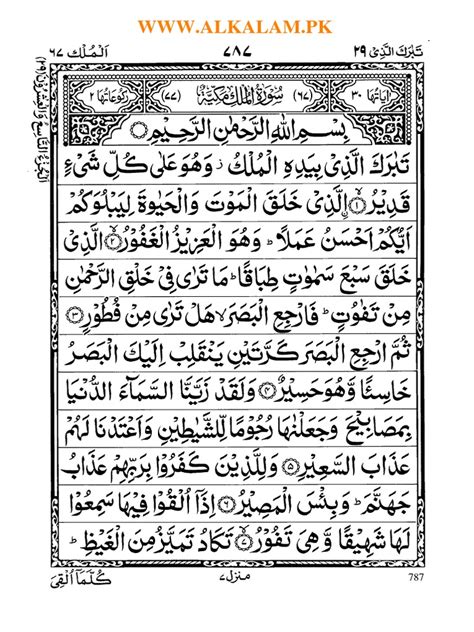 WWW.ALKALAM.PK
تَبٰرَكَ الَّذِیْ ۲۹
۷۸۷
اَلْمُلْك ۶۷
اٰیَاتُهَا ۳۰
(۶۷) سُوْرَةُ الْمُلْكِ مَكِّیَّةٌ (۷۷)
رُكُوْعَاتُهَا ۲
بِسْمِ اللّٰهِ الرَّحْمٰنِ الرَّحِیْمِ
تَبٰرَكَ الَّذِیْ بِیَدِهِ الْمُلْكُ ز وَهُوَ عَلٰی كُلِّ شَیْءٍ
قَدِیْرُ ۙ﴿۱﴾ ۨالَّذِیْ خَلَقَ الْمَوْتَ وَالْحَیٰوةَ لِیَبْلُوَكُمْ
اَیُّكُمْ اَحْسَنُ عَمَلًا ؕ وَهُوَ الْعَزِیْزُ الْغَفُوْرُ ۙ﴿۲﴾ الَّذِیْ
خَلَقَ سَبْعَ سَمٰوٰتٍ طِبَاقًا ؕ مَا تَرٰی فِیْ خَلْقِ الرَّحْمٰنِ
مِنْ تَفٰوُتٍ ؕ فَارْجِعِ الْبَصَرَ ۙ هَلْ تَرٰی مِنْ فُطُوْرٍ ﴿۳﴾
ثُمَّ ارْجِعِ الْبَصَرَ كَرَّتَیْنِ یَنْقَلِبْ اِلَیْكَ الْبَصَرُ
خَاسِئًا وَّهُوَ حَسِیْرٌ ﴿۴﴾ وَلَقَدْ زَیَّنَّا السَّمَآءَ الدُّنْیَا
بِمَصَابِیْحَ وَجَعَلْنٰهَا رُجُوْمًا لِّلشَّیٰطِیْنِ وَاَعْتَدْنَا لَهُمْ
عَذَابَ السَّعِیْرِ ﴿۵﴾ وَلِلَّذِیْنَ كَفَرُوْا بِرَبِّهِمْ عَذَابُ
جَهَنَّمَ ؕ وَبِئْسَ الْمَصِیْرُ ﴿۶﴾ اِذَآ اُلْقُوْا فِیْهَا سَمِعُوْا
لَهَا شَهِیْقًا وَّهِیَ تَفُوْرُ ۙ﴿۷﴾ تَكَادُ تَمَیَّزُ مِنَ الْغَیْظِ ؕ
كُلَّمَآ اُلْقِیَ
منزل ۷
787